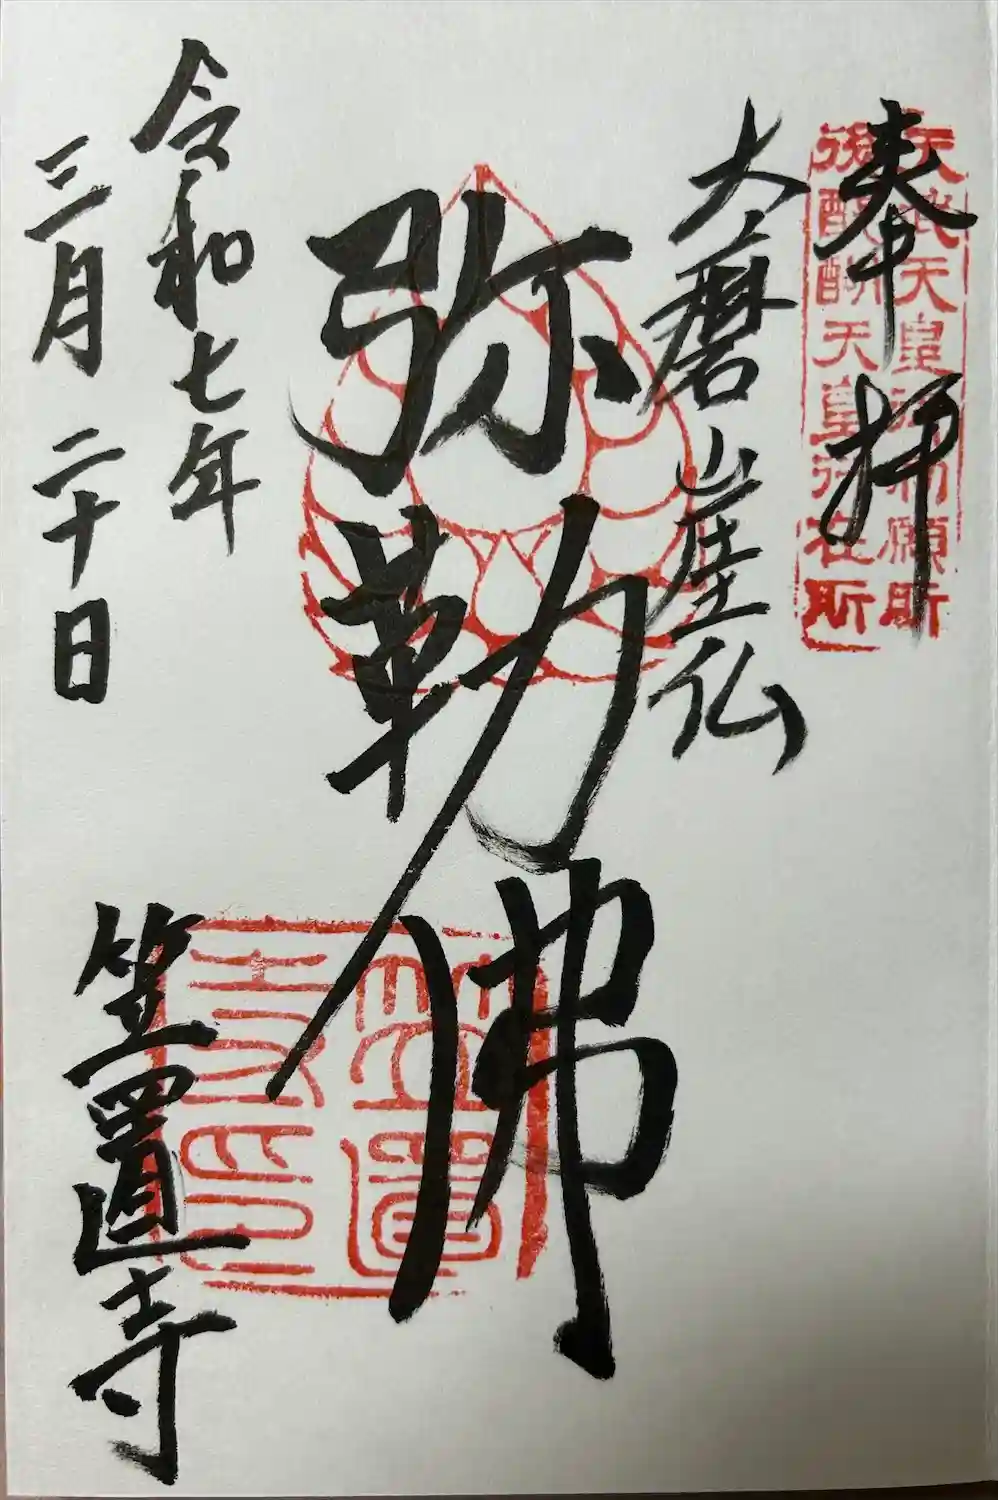 奉拝
天武天皇勅願所
後醍醐天皇行在所
大磨崖仏
弥勒佛
令和七年
三月二十日
笠置寺
笠置
寺印